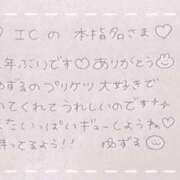 ♡ ICの 本指名さま♡
年ぶりです♡ありがとう
ゆずるのプリケツ大好きで
いてくれてうれしいのです
たいっぱいギューしようね♡
待ってるよう!! ゆずる